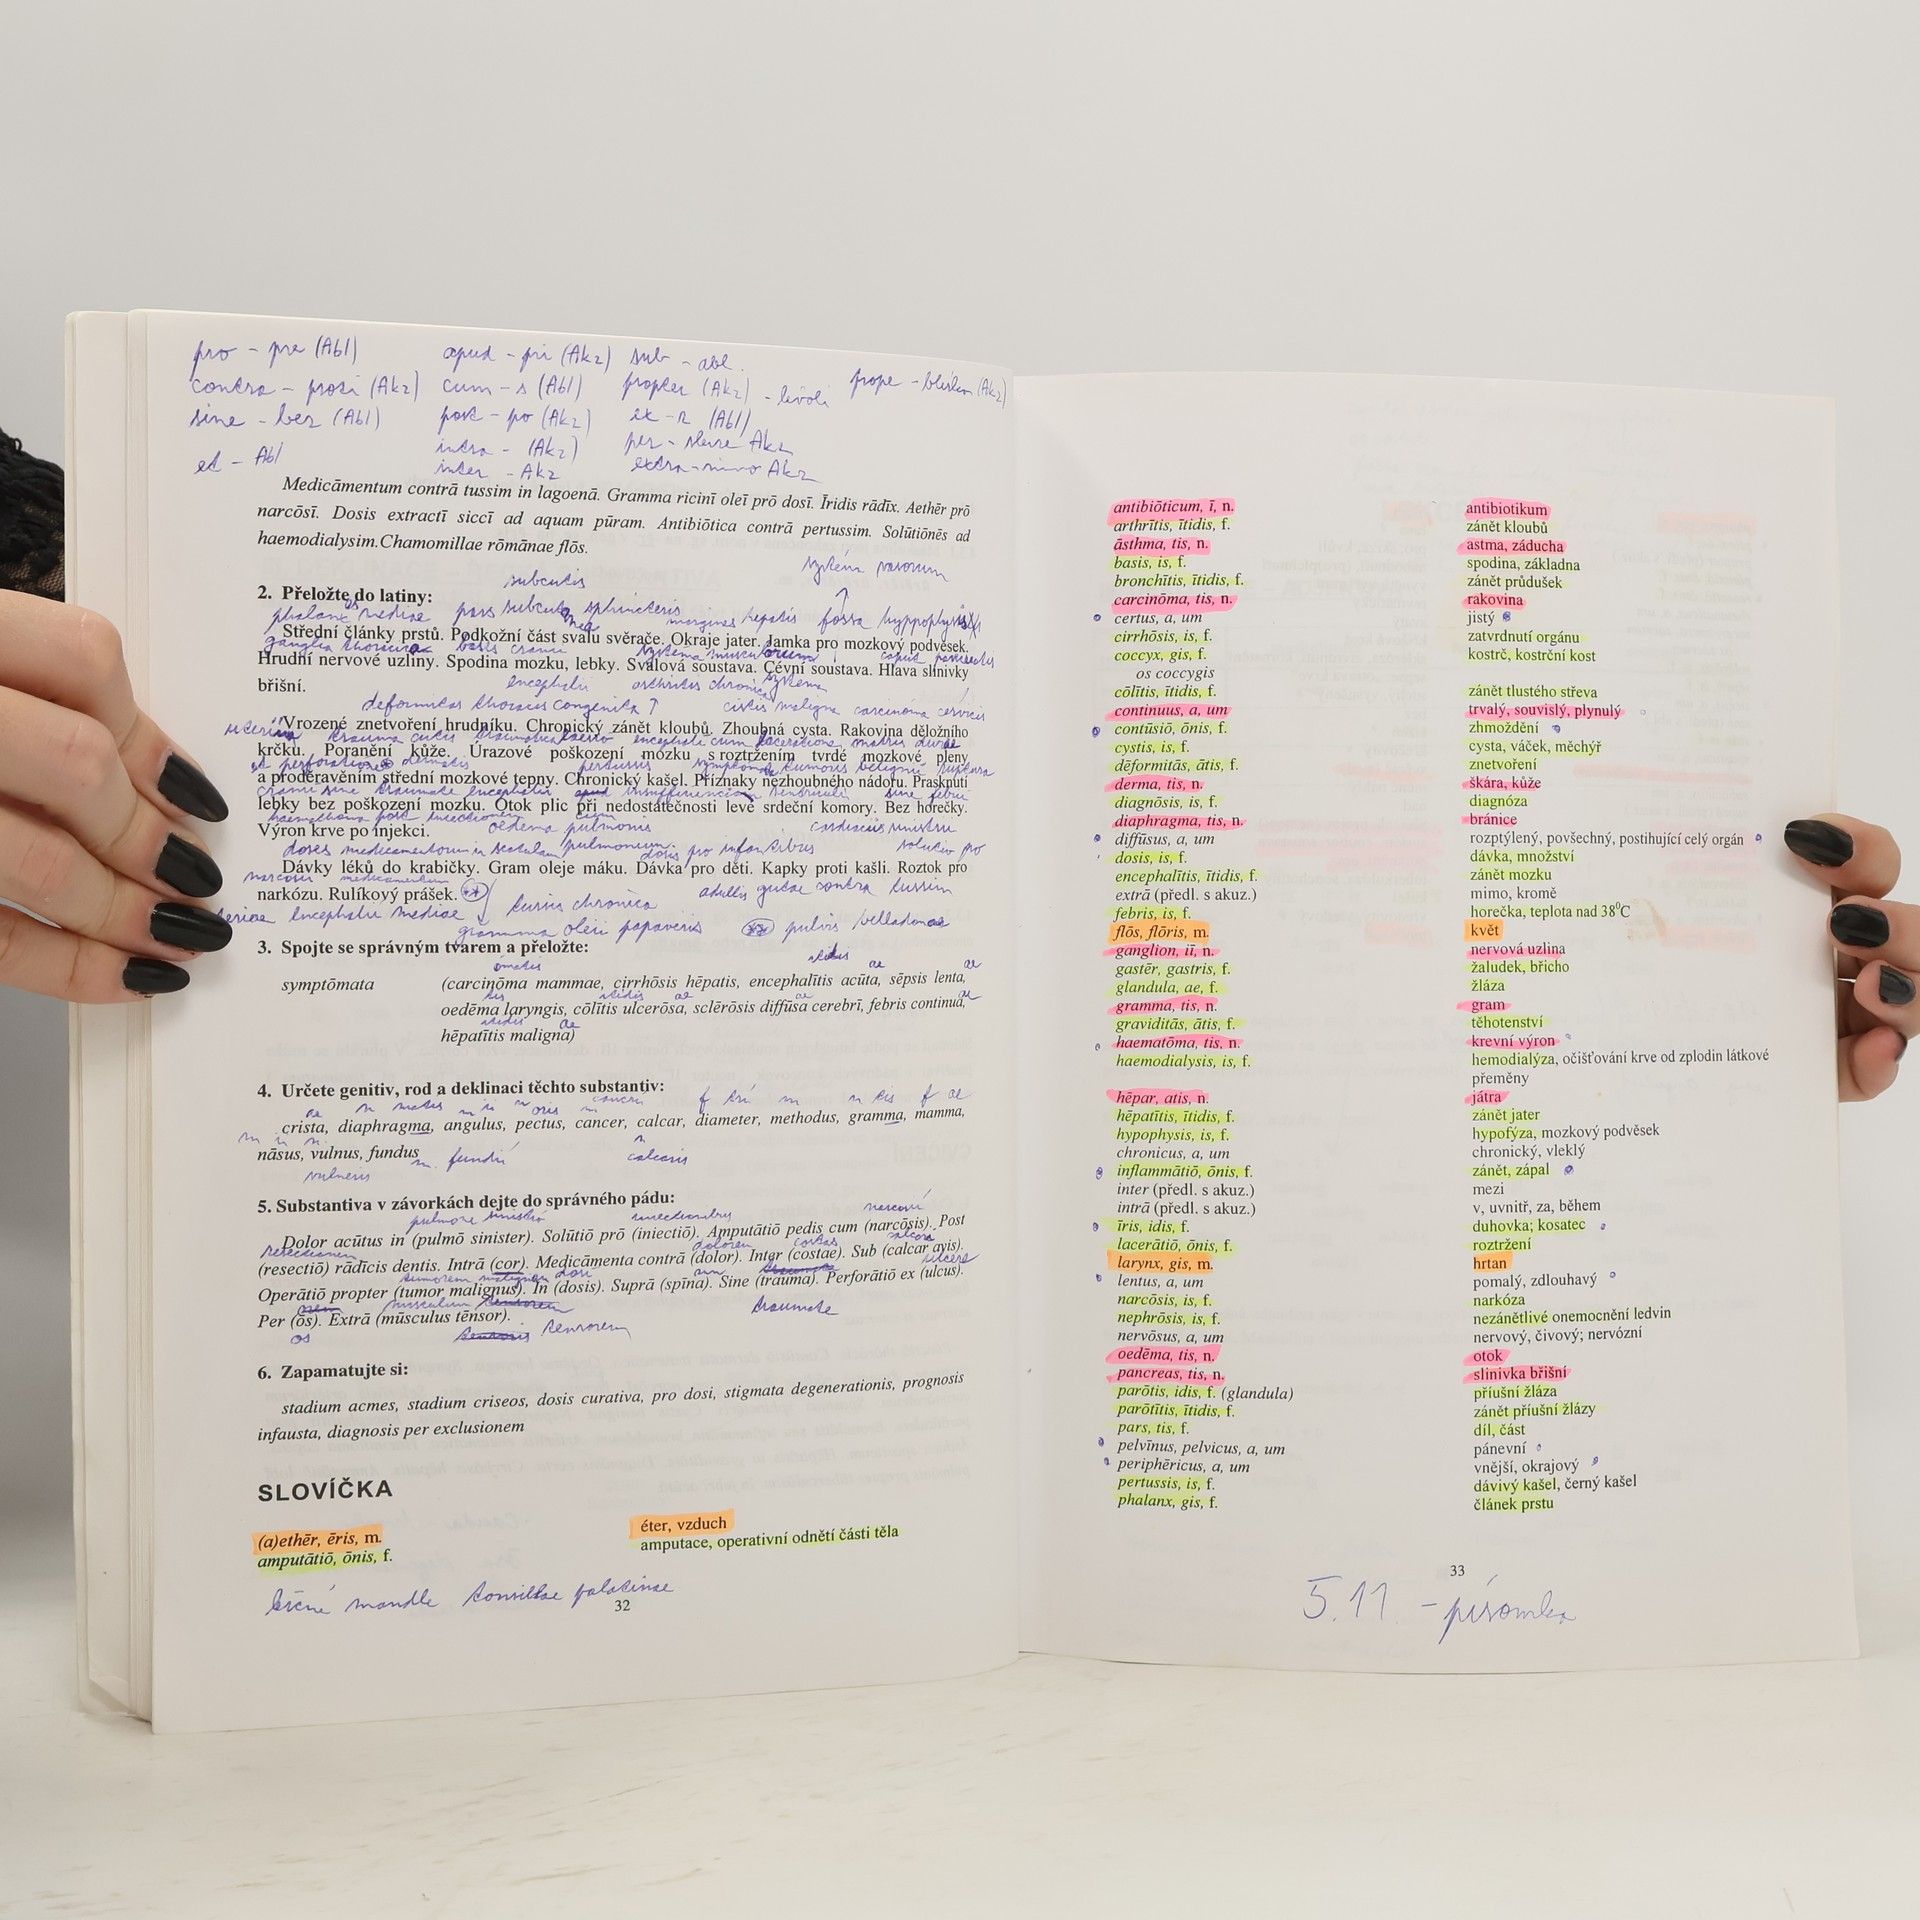 pro - pre (Abl)
apud - pri (Ak2)
sub - abl.
contra - proti (Ak2)
cum - s (Abl)
propter (Ak2) - kvôli
prope - blízko (Ak2)
sine - bez (Abl)
post - po (Ak2)
ex - z (Abl)
et - Abl
intra - (Ak2)
per - skrze Ak2
inter - Ak2
extra - mimo Ak2
Medicāmentum contrā tussim in lagoenā. Gramma ricinī oleī prō dosī. Īridis rādīx. Aethēr prō
narcōsī. Dosis extractī siccī ad aquam pūram. Antibiōtica contrā pertussim. Solūtiōnēs ad
haemodialysim. Chamomillae rōmānae flōs.
systema vasorum
subcutis
2. Přeložte do latiny:
Střední články prstů. Podkožní část svalu svěrače. Okraje jater. Jamka pro mozkový podvěsek.
Hrudní nervové uzliny. Spodina mozku, lebky. Svalová soustava. Cévní soustava. Hlava slinivky
břišní.
encephali arthritis chronica
deformitas thoracis congenita
cistis maligna carcinoma cervicis
Vrozené znetvoření hrudníku. Chronický zánět kloubů. Zhoubná cysta. Rakovina děložního
krčku. Poranění kůže. Úrazové poškození mozku s roztržením tvrdé mozkové pleny
a proděravěním střední mozkové tepny. Chronický kašel. Příznaky nezhoubného nádoru. Prasknutí
lebky bez poškození mozku. Otok plic při nedostatečnosti levé srdeční komory. Bez horečky.
Výron krve po injekci.
oedema pulmonis
Dávky léků do krabičky. Gram oleje máku. Dávka pro děti. Kapky proti kašli. Roztok pro
narkózu. Rulíkový prášek.
guttae contra tussim
encephali mediae
tussis chronica
gramma olei papaveris
pulvis belladonae
3. Spojte se správným tvarem a přeložte:
symptōmata
(carcinōma mammae, cirrhōsis hēpatis, encephalītis acūta, sēpsis lenta,
oedēma laryngis, cōlītis ulcerōsa, sclērōsis diffūsa cerebrī, febris continua,
hēpatītis maligna)
4. Určete genitiv, rod a deklinaci těchto substantiv:
crista, diaphragma, angulus, pectus, cancer, calcar, diameter, methodus, gramma, mamma,
nāsus, vulnus, fundus
m. fundi
calcaris
vulneris
5. Substantiva v závorkách dejte do správného pádu:
pulmone sinistro
injectionibus
narcosi
Dolor acūtus in (pulmō sinister). Solūtiō prō (iniectiō). Amputātiō pedis cum (narcōsis). Post
resectionem
dolorem
costas
(resectiō) rādīcis dentis. Intrā (cor). Medicāmenta contrā (dolor). Inter (costae). Sub (calcar avis).
tumorem malignum
dosi
ulcere
Operātiō propter (tumor malignus). In (dosis). Suprā (spīna). Sine (trauma). Perforātiō ex (ulcus).
musculum
traumate
Per (ōs). Extrā (mūsculus tēnsor).
os
tensorem
6. Zapamatujte si:
stadium acmes, stadium criseos, dosis curativa, pro dosi, stigmata degenerationis, prognosis
infausta, diagnosis per exclusionem
SLOVÍČKA
(a)ethēr, ēris, m. éter, vzduch
amputātiō, ōnis, f. amputace, operativní odnětí části těla
krčné mandle tonsillae palatinae
32
antibiōticum, ī, n. antibiotikum
arthrītis, ītidis, f. zánět kloubů
āsthma, tis, n. astma, záducha
basis, is, f. spodina, základna
bronchītis, ītidis, f. zánět průdušek
carcinōma, tis, n. rakovina
certus, a, um jistý
cirrhōsis, is, f. zatvrdnutí orgánu
coccyx, gis, f. kostrč, kostrční kost
os coccygis
cōlītis, ītidis, f. zánět tlustého střeva
continuus, a, um trvalý, souvislý, plynulý
contūsiō, ōnis, f. zhmoždění
cystis, is, f. cysta, váček, měchýř
dēformitās, ātis, f. znetvoření
derma, tis, n. škára, kůže
diagnōsis, is, f. diagnóza
diaphragma, tis, n. bránice
diffūsus, a, um rozptýlený, povšechný, postihující celý orgán
dosis, is, f. dávka, množství
encephalītis, ītidis, f. zánět mozku
extrā (předl. s akuz.) mimo, kromě
febris, is, f. horečka, teplota nad 38⁰C
flōs, flōris, m. květ
ganglion, iī, n. nervová uzlina
gastēr, gastris, f. žaludek, břicho
glandula, ae, f. žláza
gramma, tis, n. gram
graviditās, ātis, f. těhotenství
haematōma, tis, n. krevní výron
haemodialysis, is, f. hemodialýza, očišťování krve od zplodin látkové
přeměny
hēpar, atis, n. játra
hēpatītis, ītidis, f. zánět jater
hypophysis, is, f. hypofýza, mozkový podvěsek
chronicus, a, um chronický, vleklý
inflammātiō, ōnis, f. zánět, zápal
inter (předl. s akuz.) mezi
intrā (předl. s akuz.) v, uvnitř, za, během
īris, idis, f. duhovka; kosatec
lacerātiō, ōnis, f. roztržení
larynx, gis, m. hrtan
lentus, a, um pomalý, zdlouhavý
narcōsis, is, f. narkóza
nephrōsis, is, f. nezánětlivé onemocnění ledvin
nervōsus, a, um nervový, čivový; nervózní
oedēma, tis, n. otok
pancreas, tis, n. slinivka břišní
parōtis, idis, f. (glandula) příušní žláza
parōtītis, ītidis, f. zánět příušní žlázy
pars, tis, f. díl, část
pelvīnus, pelvicus, a, um pánevní
periphēricus, a, um vnější, okrajový
pertussis, is, f. dávivý kašel, černý kašel
phalanx, gis, f. článek prstu
33
5.11. - písomka